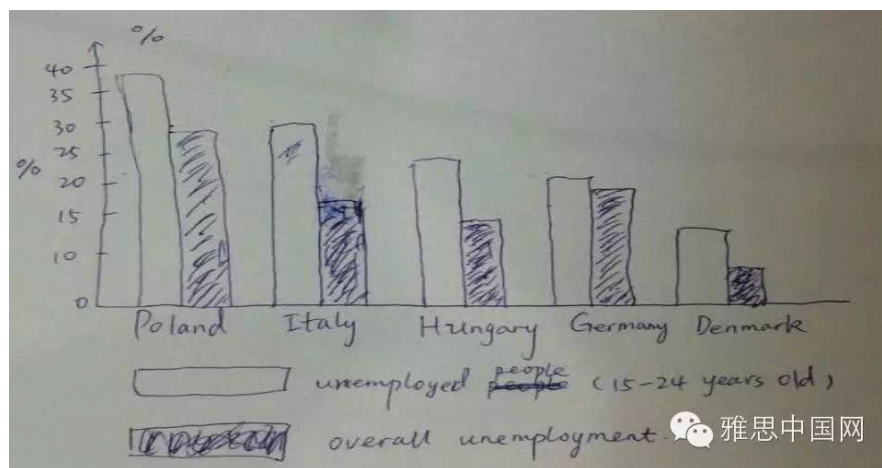 %
40
35
30
25
%
20
15
10
0
Poland Italy Hungary Germany Denmark
people
unemployed people (15-24 years old)
overall unemployment.
雅思中国网